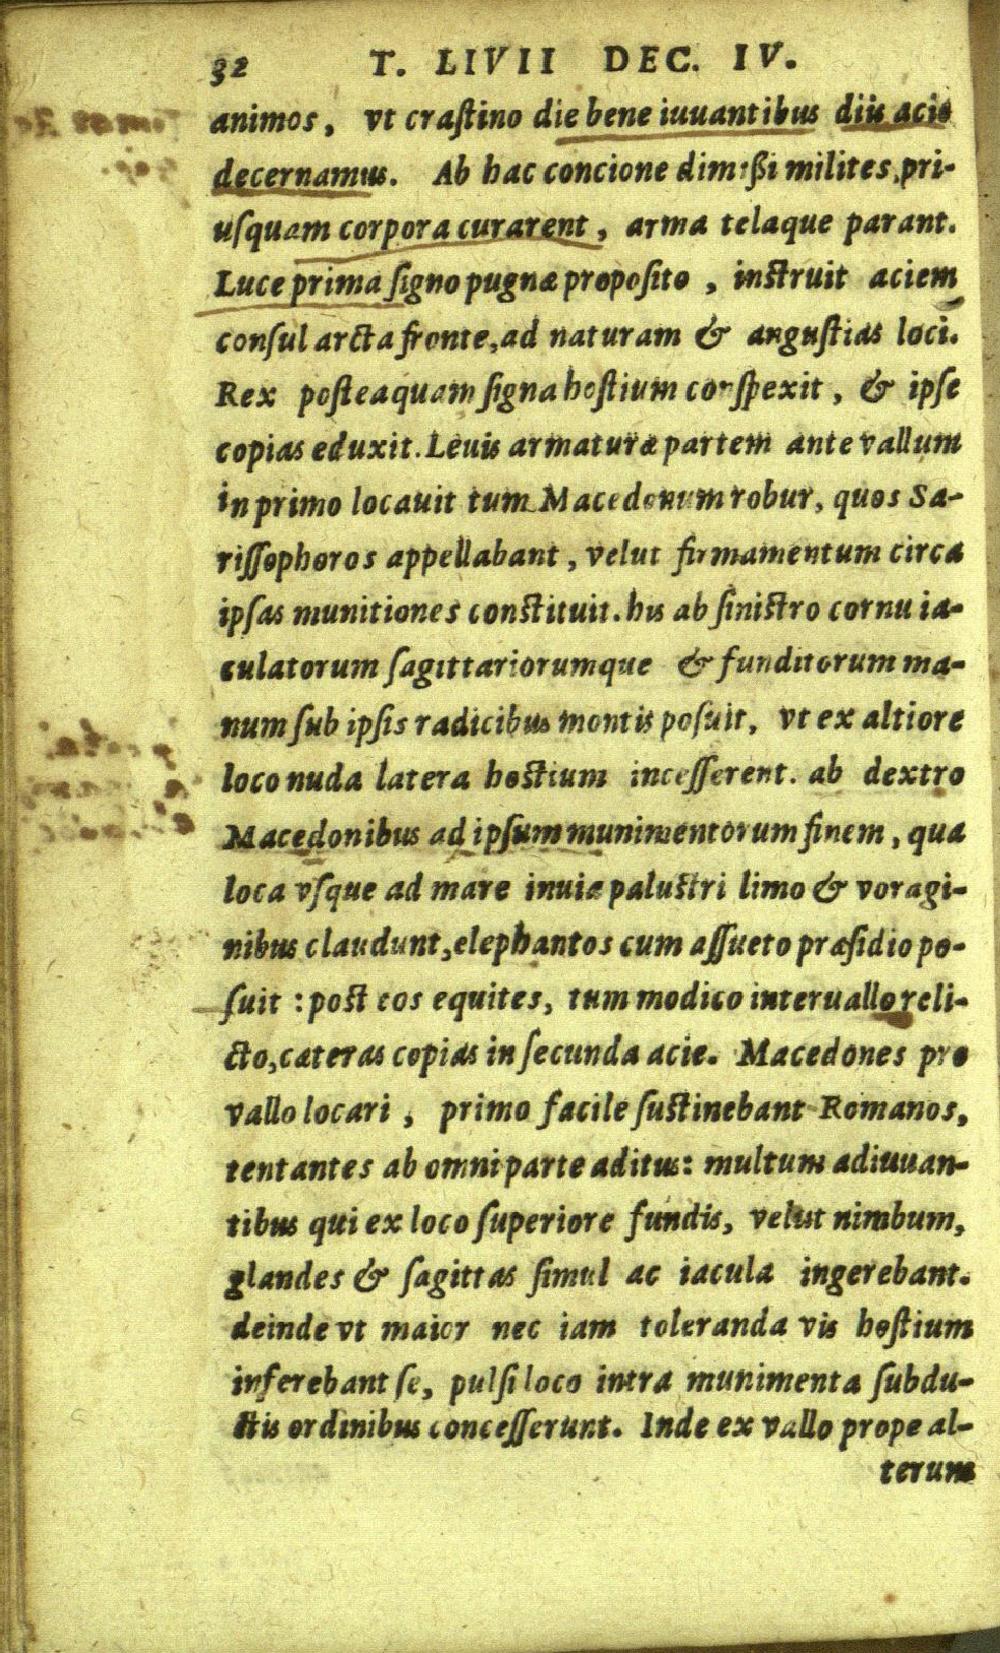 32 T. LIVII DEC. IV.
animos, vt craſtino die bene iuuantibus diis acie
decernamus. Ab hac concione dimißi milites, pri-
uſquam corpora curarent, arma telaque parant.
Luce prima ſigno pugnæ propoſito, inſtruit aciem
conſul arcta fronte, ad naturam & anguſtias loci.
Rex poſteaquam ſigna hoſtium conſpexit, & ipſe
copias eduxit. Leuis armaturæ partem ante vallum
in primo locauit tum Macedonum robur, quos Sa-
riſſophoros appellabant, velut firmamentum circa
ipſas munitiones conſtituit. his ab ſiniſtro cornu ia-
culatorum ſagittariorumque & funditorum ma-
num ſub ipſis radicibus montis poſuit, vt ex altiore
loco nuda latera hoſtium inceſſerent. ab dextro
Macedonibus ad ipſum munimentorum finem, qua
loca vſque ad mare inuia paluſtri limo & voragi-
nibus claudunt, elephantos cum aſſueto præſidio po-
ſuit : poſt eos equites, tum modico interuallo reli-
cto, cæteras copias in ſecunda acie. Macedones pro
vallo locari, primo facile ſuſtinebant Romanos,
tentantes ab omni parte aditus: multum adiuuan-
tibus qui ex loco ſuperiore fundis, velut nimbum,
glandes & ſagittas ſimul ac iacula ingerebant.
deinde vt maior nec iam toleranda vis hoſtium
inferebant ſe, pulſi loco intra munimenta ſubdu-
ctis ordinibus conceſſerunt. Inde ex vallo prope al-
terum